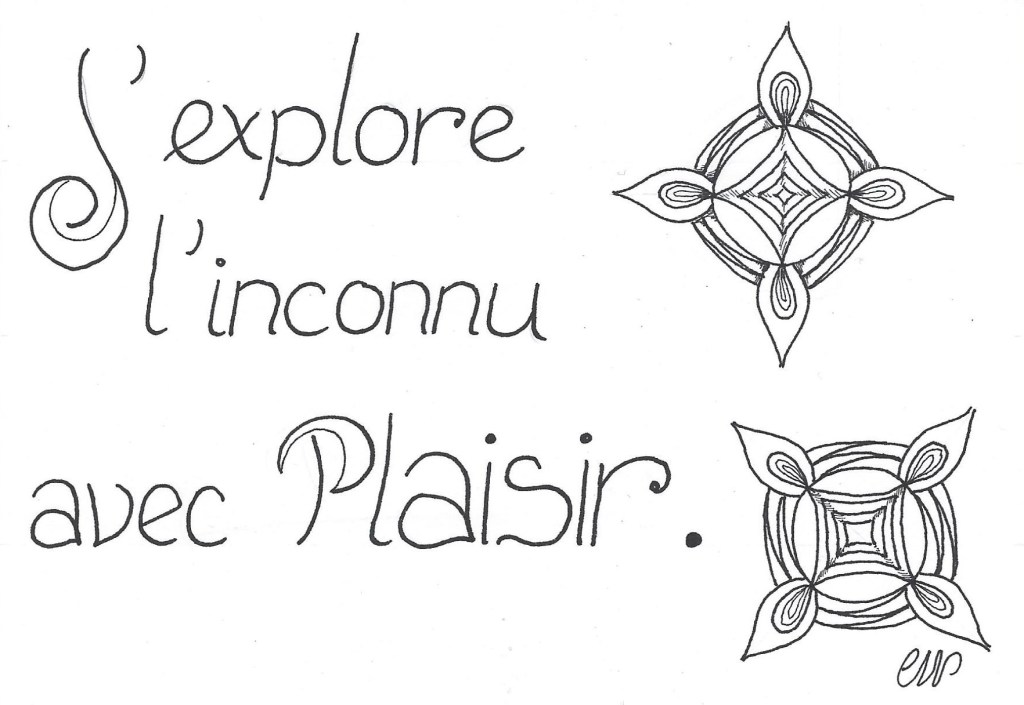 J'explore
l'inconnu
avec Plaisir.